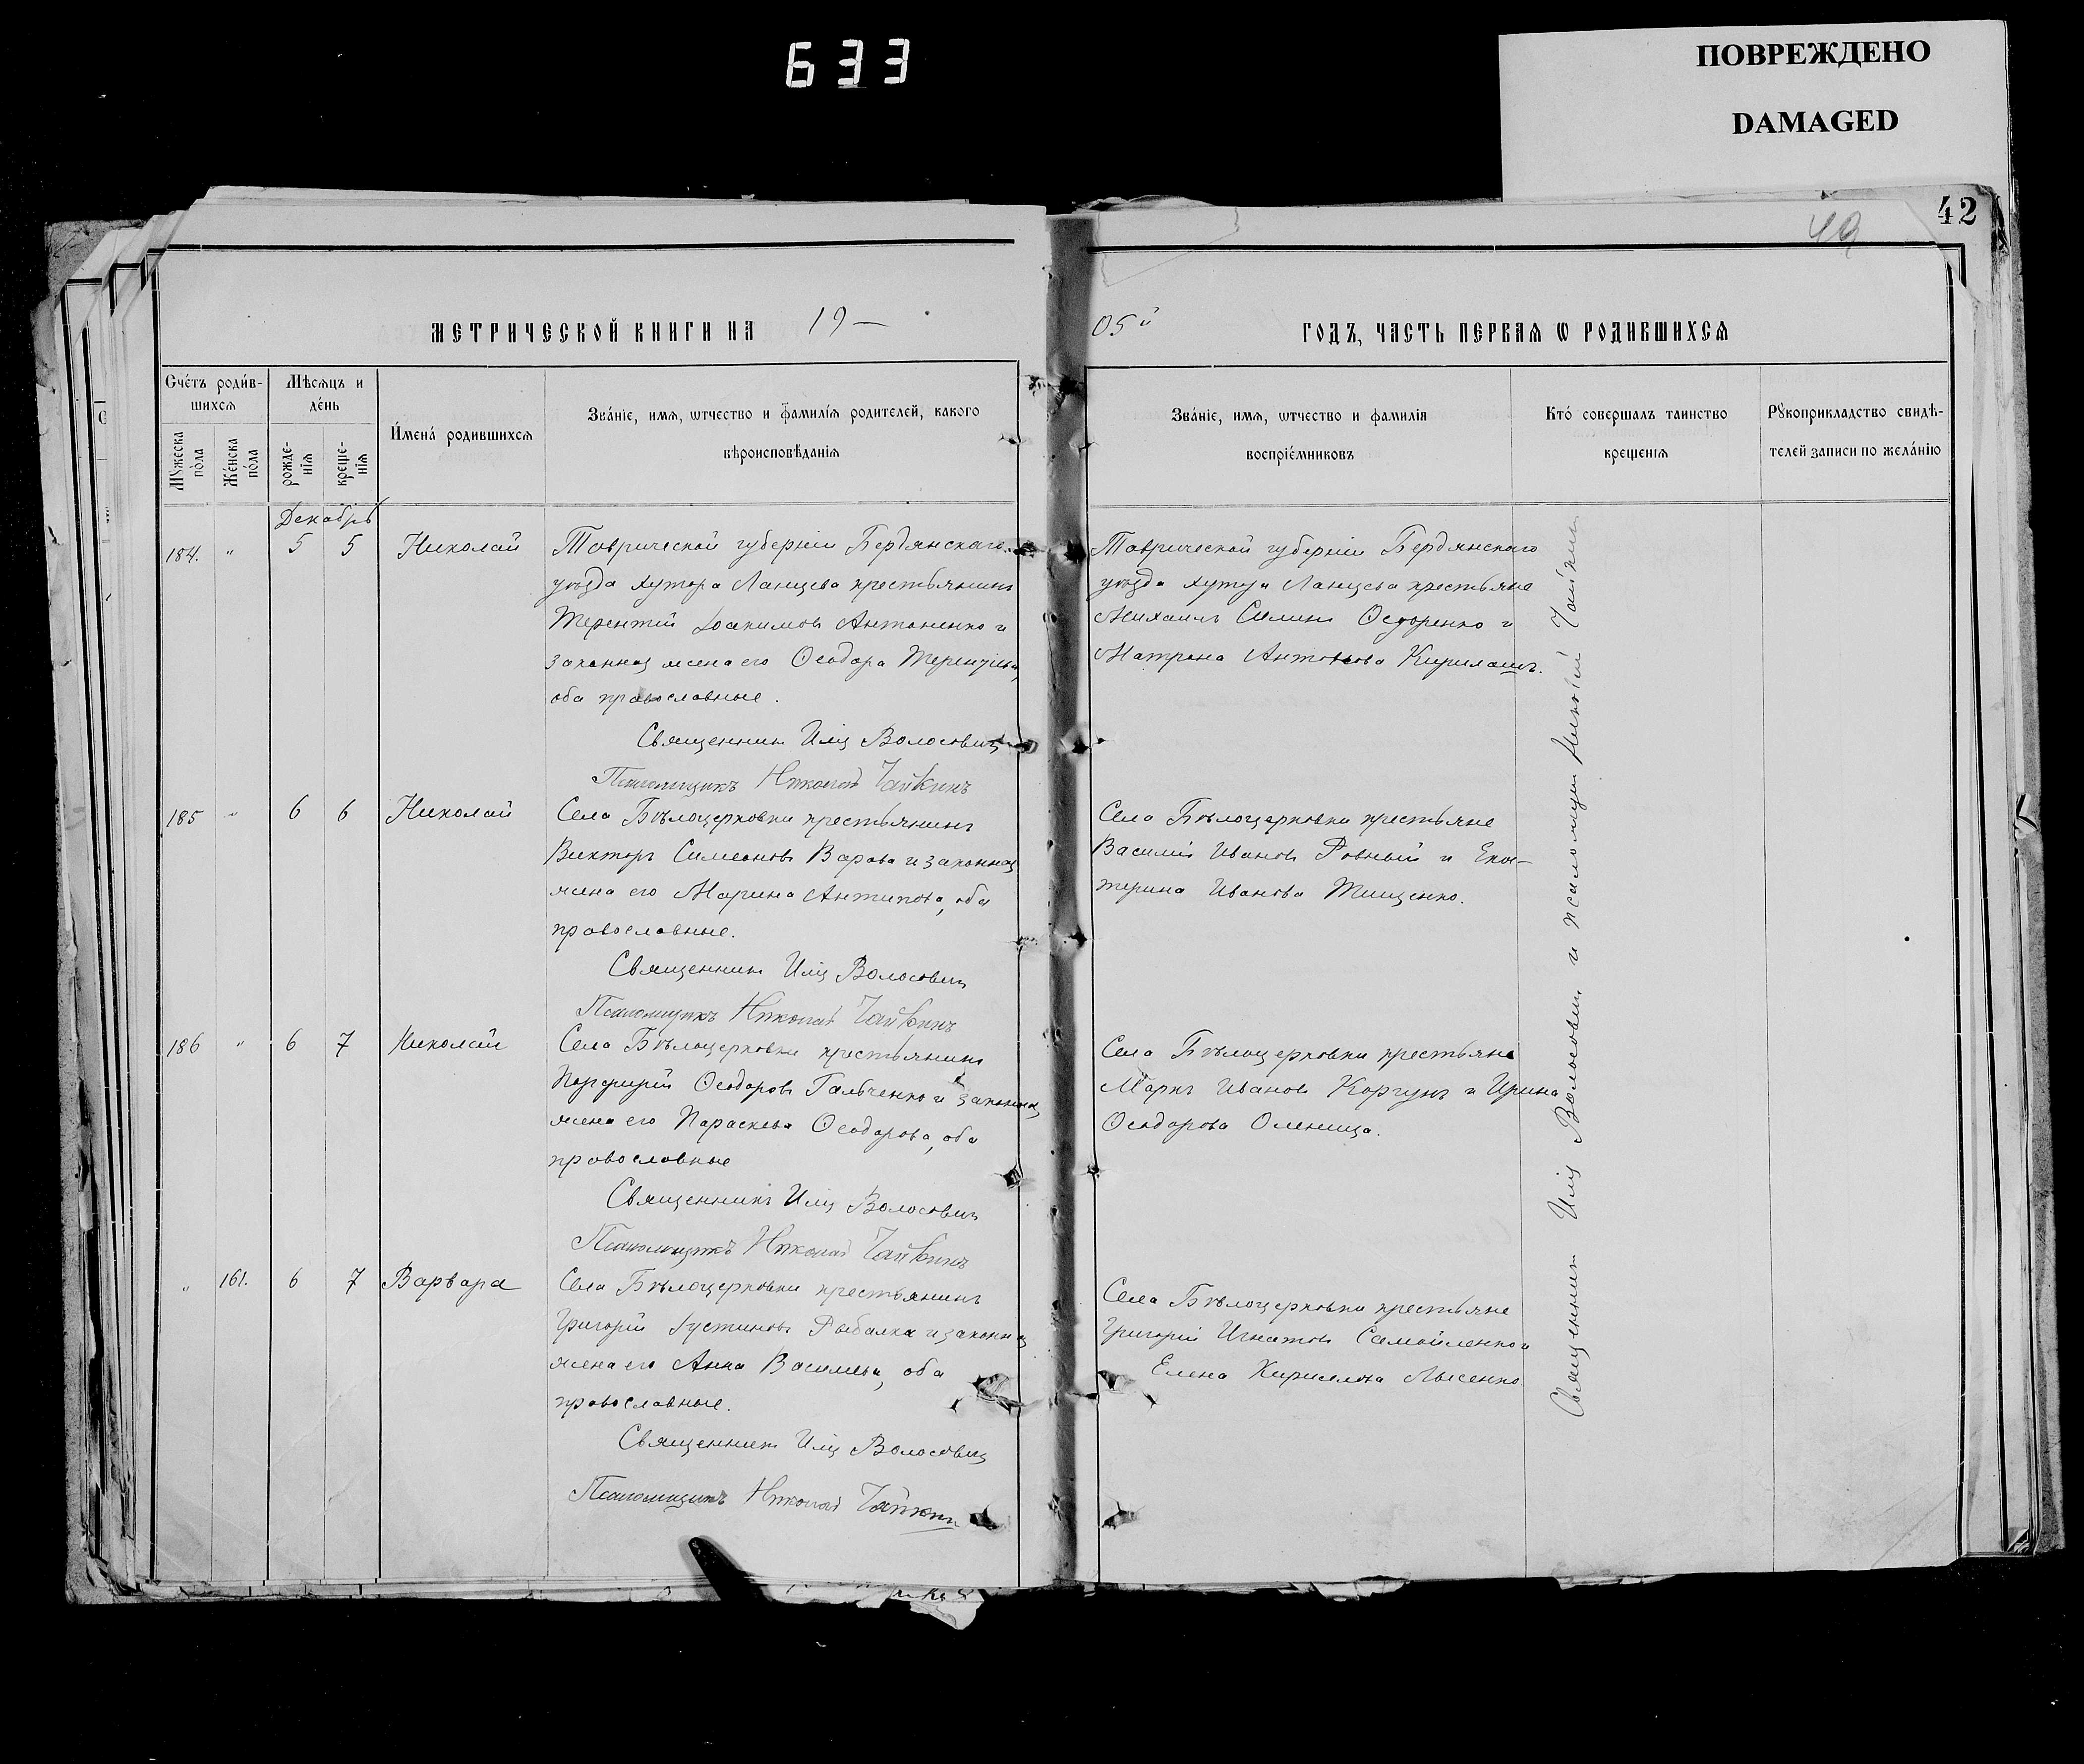 633
ПОВРЕЖДЕНО
DAMAGED
42
МЕТРИЧЕСКОЙ КНИГИ НА 19—
Счётъ родившихся
Мѣсяцъ и день
Имена родившихся
Званіе, имя, отчество и фамилія родителей, какого
вѣроисповѣданія
Мужеска пола
Женска пола
рожденія
крещенія
Декабрь
184. " 5 5 Николай
Таврической губерніи Бердянскаго
уѣзда хутора Ланцева крестьянинъ
Терентій Іоакимовъ Антоненко и
законная жена его Ѳеодора Терентьева,
оба православные.
Священникъ Илія Волосовичъ
Псаломщикъ Николай Чайкинъ
185 " 6 6 Николай
Села Бѣлоцерковки крестьянинъ
Викторъ Симеоновъ Варава и законная
жена его Марина Антипова, оба
православные.
Священникъ Илія Волосовичъ
Псаломщикъ Николай Чайкинъ
186 " 6 7 Николай
Села Бѣлоцерковки крестьянинъ
Порфирій Ѳеодоровъ Гальченко и законная
жена его Параскева Ѳеодорова, оба
православные
Священникъ Илія Волосовичъ
Псаломщикъ Николай Чайкинъ
" 161. 6 7 Варвара
Села Бѣлоцерковки крестьянинъ
Григорій Іустиновъ Рыбалка и законная
жена его Анна Васильева, оба
православные.
Священникъ Илія Волосовичъ
Псаломщикъ Николай Чайкинъ
05й ГОДЪ, ЧАСТЬ ПЕРВАЯ Ѡ РОДИВШИХСЯ
Званіе, имя, отчество и фамилія
воспріемниковъ
Кто совершалъ таинство
крещенія
Рукоприкладство свидѣ-
телей записи по желанію
Таврической губерніи Бердянскаго
уѣзда хутора Ланцева крестьяне
Михаилъ Силинъ Ѳедоренко и
Матрона Антонова Кирилашъ.
Села Бѣлоцерковки крестьяне
Василій Ивановъ Ровный и Ека-
терина Иванова Тищенко.
Села Бѣлоцерковки крестьяне
Маркъ Ивановъ Коргунъ и Ирина
Ѳеодорова Оленица.
Села Бѣлоцерковки крестьяне
Григорій Игнатовъ Самойленко и
Елена Кириллова Лысенко
Священникъ Илія Волосовичъ и псаломщикъ Николай Чайкинъ